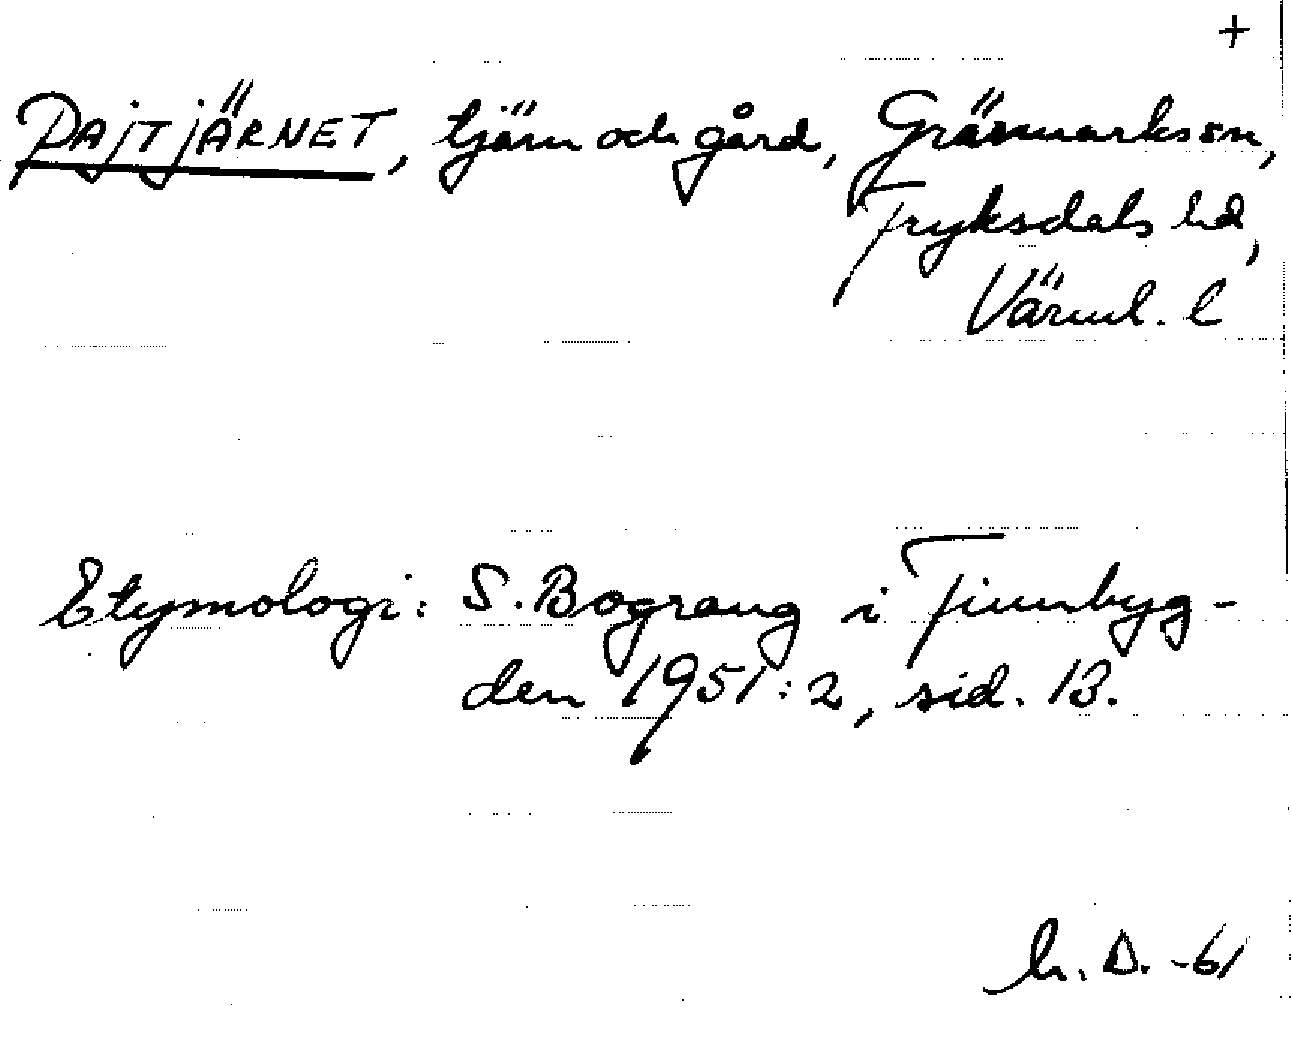 +
PAJTJÄRNET, tjärn och gård, Gräsmarks sn,
Fryksdals hd,
Värml. l
Etymologi: S. Bograng i Finnbyg-
den 1951:2, sid. 13.
h. D. -61